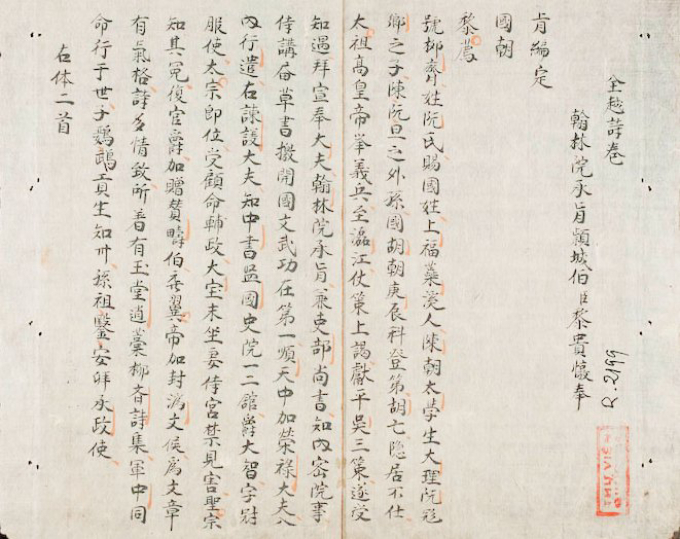 全越詩卷
翰林院承旨頴城伯臣黎貴惇奉
旨編定
國朝
黎廌
號抑齋姓阮氏賜國姓上福蘂溪人陳朝太學生大理阮飛
卿之子陳阮旦之外孫國胡朝庚辰科登第胡亡隐居不仕
太祖高皇帝举義兵至瀘江仗策上謁獻平吳三策遂受
知遇拜宣奉大夫翰林院承旨兼吏部尚書知內密院事
侍講居草書檄開國文武功在第一順天中加榮禄大夫入
內行遣右諫議大夫知中書監國史院一二舘爵大智字對
服使太宗即位受顧命輔政大宝末坐妾侍宮禁見害聖宗
知其冤復官爵加贈賛疇伯襄翼帝加封濟文侯為文章
有氣格詩多情致所著有玉堂遺藁抑斎詩集軍中詞
命行于世子鸚鵡員生知州孫祖鑒安拜承政使
右体二首
R.2199
THƯ VIỆN